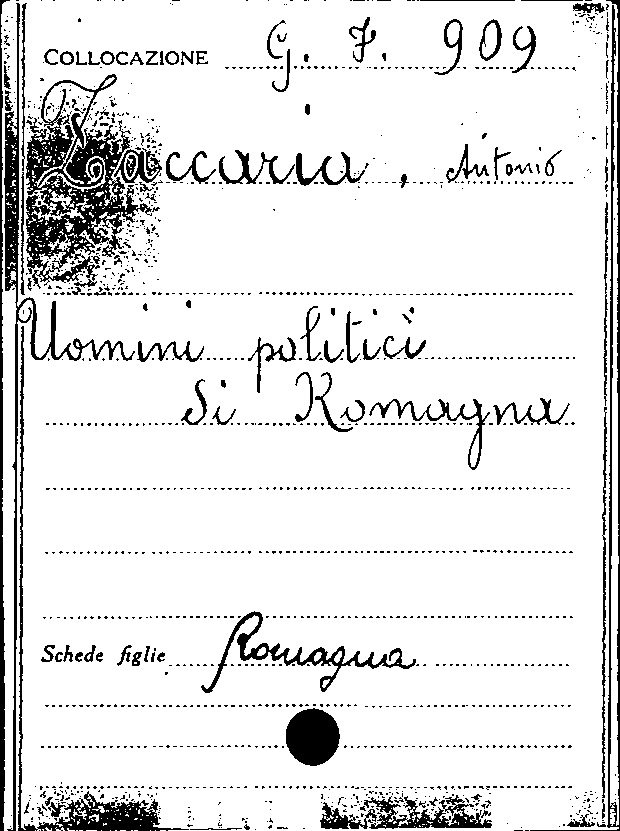 COLLOCAZIONE G. F. 909
Zaccaria, Antonio
Uomini politici
di Romagna
Schede figlie Romagna